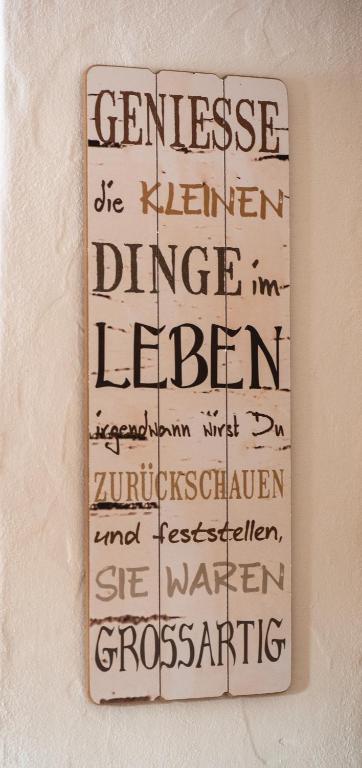 GENIESSE
die KLEINEN
DINGE im
LEBEN
irgendwann wirst Du
ZURÜCKSCHAUEN
und feststellen,
SIE WAREN
GROSSARTIG